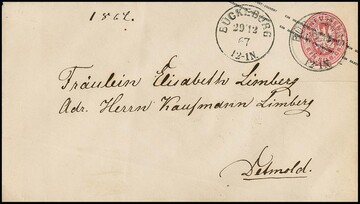 1867.
BÜCKEBURG
29 12
67
12-1N
Fräulein Elisabeth Limberg
Adr. Herrn Kaufmann Limberg
Detmold.